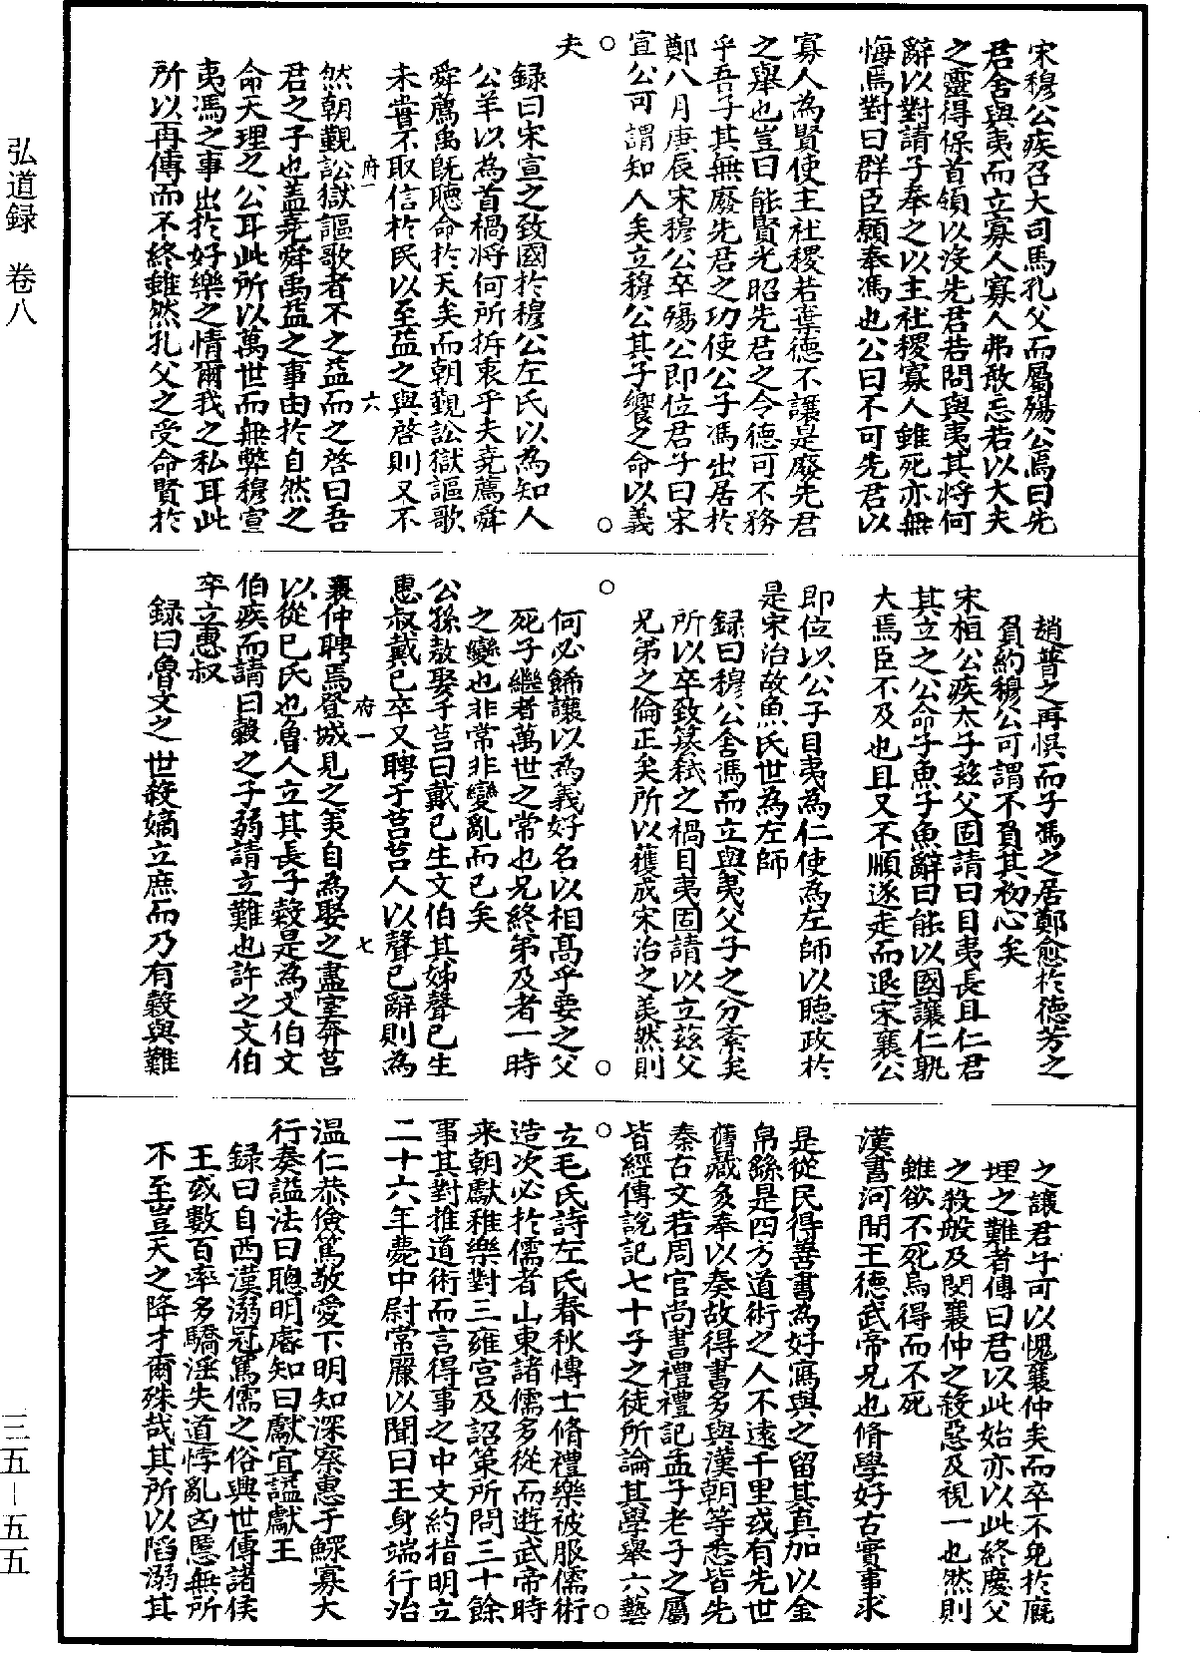 弘道録　卷八
三五－五五
宋穆公疾召大司馬孔父而屬殤公焉曰先
君舍與夷而立寡人寡人弗敢忘若以大夫
之靈得保首領以沒先君若問與夷其將何
辭以對請子奉之以主社稷寡人雖死亦無
悔焉對曰群臣願奉馮也公曰不可先君以
寡人為賢使主社稷若棄德不讓是廢先君
之舉也豈曰能賢光昭先君之令德可不務
乎吾子其無廢先君之功使公子馮出居於
鄭八月庚辰宋穆公卒殤公即位君子曰宋
宣公可謂知人矣立穆公其子饗之命以義
夫
録曰宋宣之致國於穆公左氏以為知人
公羊以為首禍將何所折衷乎夫堯薦舜
舜薦禹既聽命於天矣而朝覲訟獄謳歌
未嘗不取信於民以至益之與啓則又不
府一　六
然朝覲訟獄謳歌者不之益而之啓曰吾
君之子也盖堯舜禹益之事由於自然之
命天理之公耳此所以萬世而無弊穆宣
夷馮之事出於好樂之情爾我之私耳此
所以再傳而不終雖然孔父之受命賢於
趙普之再悞而子馮之居鄭愈於德芳之
負約穆公可謂不負其初心矣
宋桓公疾太子兹父固請曰目夷長且仁君
其立之公命子魚子魚辭曰能以國讓仁孰
大焉臣不及也且又不順遂走而退宋襄公
即位以公子目夷為仁使為左師以聽政於
是宋治故魚氏世為左師
録曰穆公舍馮而立與夷父子之分紊矣
所以卒致簒弒之禍目夷固請以立兹父
兄弟之倫正矣所以獲成宋治之美然則
何必飾讓以為義好名以相高乎要之父
死子繼者萬世之常也兄終弟及者一時
之變也非常非變亂而已矣
公孫敖娶于莒曰戴已生文伯其娣聲已生
惠叔戴已卒又聘于莒莒人以聲已辭則為
府一　七
襄仲聘焉登城見之美自為娶之盡室奔莒
以從巳氏也魯人立其長子穀是為文伯文
伯疾而請曰穀之子弱請立難也許之文伯
卒立惠叔
録曰魯文之世殺嫡立庶而乃有穀與難
之讓君子可以愧襄仲矣而卒不免於庭
埋之難者傳曰君以此始亦以此終慶父
之殺般及閔襄仲之殺惡及視一也然則
雖欲不死烏得而不死
漢書河間王德武帝兄也脩學好古實事求
是從民得善書為好寫與之留其真加以金
帛繇是四方道術之人不遠千里或有先世
舊藏多奉以奏故得書多與漢朝等悉皆先
秦古文若周官尚書禮禮記孟子老子之屬
皆經傳說記七十子之徒所論其學舉六藝
立毛氏詩左氏春秋博士脩禮樂被服儒術
造次必於儒者山東諸儒多從而遊武帝時
來朝獻雅樂對三雍宮及詔策所問三十餘
事其對推道術而言得事之中文約指明立
二十六年薨中尉常麗以聞曰王身端行治
温仁恭儉篤敬愛下明知深察惠于鰥寡大
行奏謚法曰聰明睿知曰獻宜謚獻王
録曰自西漢溺冠篤儒之俗興世傳諸侯
王或數百率多驕淫失道悖亂凶慝無所
不至豈天之降才爾殊哉其所以陷溺其